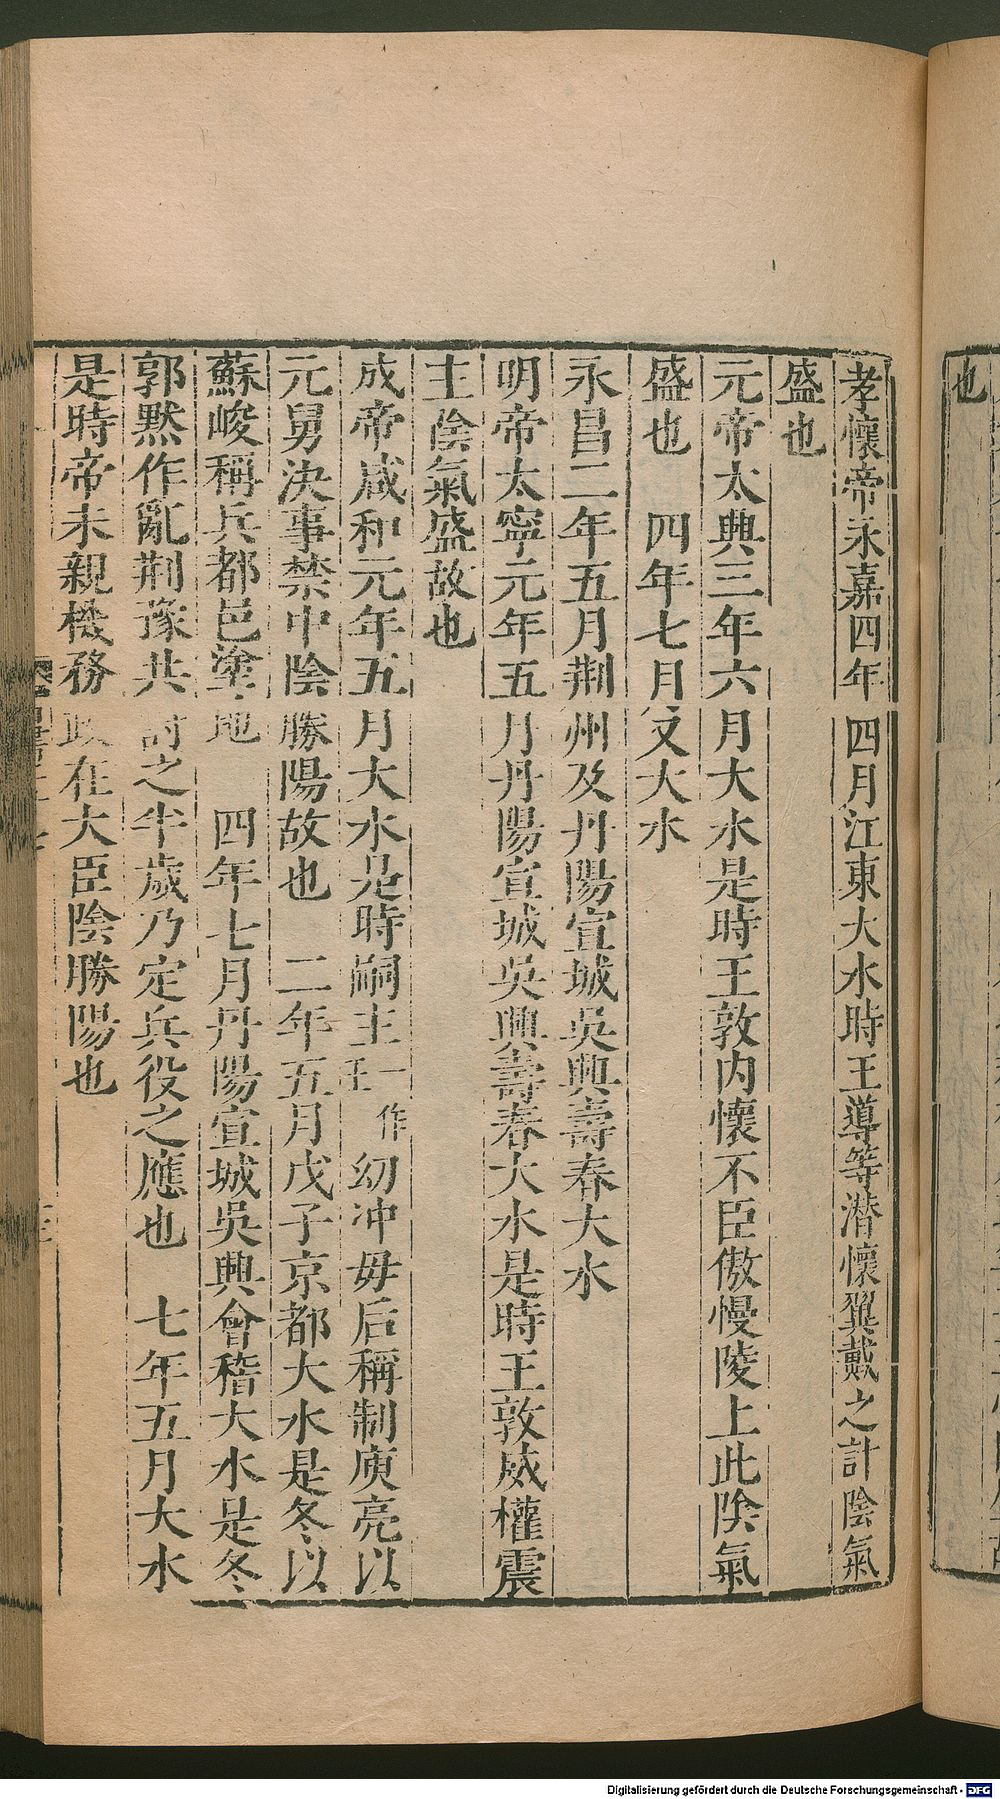 也
孝懷帝永嘉四年四月江東大水時王導等潛懷翼戴之計陰氣
盛也
元帝太興三年六月大水是時王敦內懷不臣傲慢陵上此陰氣
盛也　四年七月又大水
永昌二年五月荆州及丹陽宣城吳興壽春大水
明帝太寧元年五月丹陽宣城吳興壽春大水是時王敦威權震
主陰氣盛故也
成帝咸和元年五月大水是時嗣主一作王幼冲毋后稱制庾亮以
元舅決事禁中陰勝陽故也　二年五月戊子京都大水是冬以
蘇峻稱兵都邑塗地　四年七月丹陽宣城吳興會稽大水是冬
郭黙作亂荆豫共討之半歲乃定兵役之應也　七年五月大水
是時帝未親機務政在大臣陰勝陽也
Digitalisierung gefördert durch die Deutsche Forschungsgemeinschaft - DFG